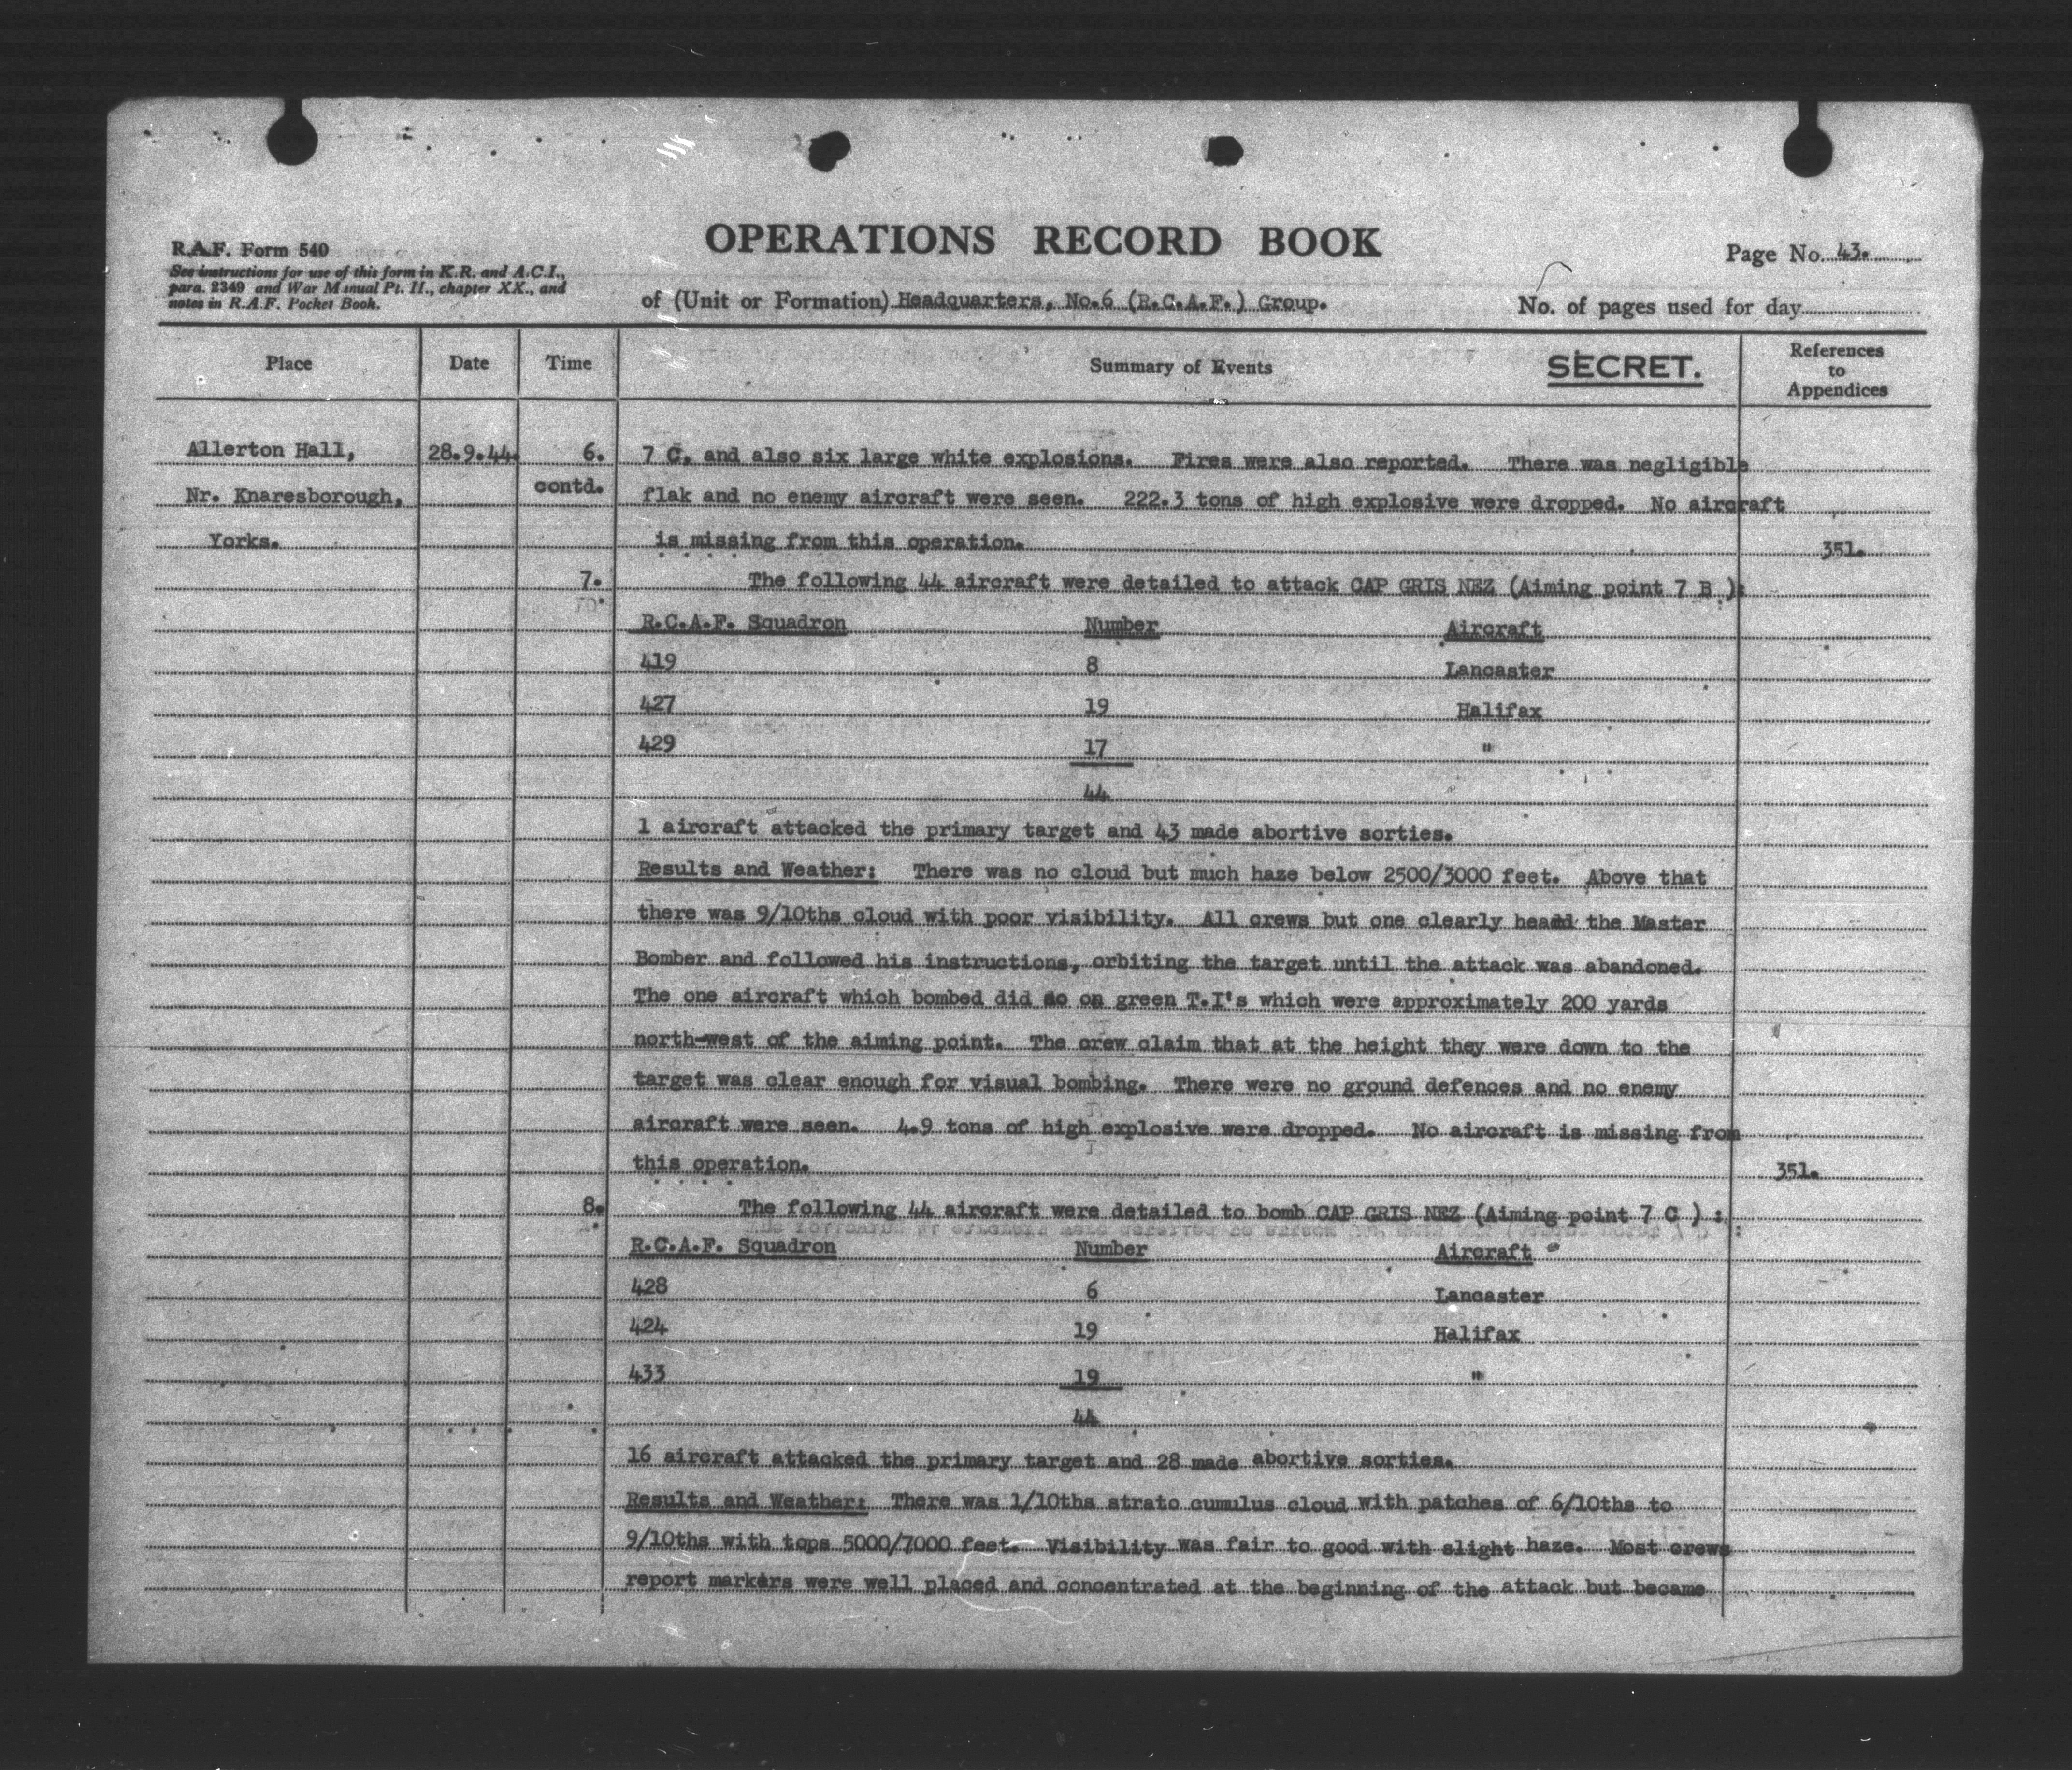 OPERATIONS RECORD BOOK
R.A.F. Form 540
See instructions for use of this form in K.R. and A.C.I.,
para. 2349 and War Manual Pt. II., chapter XX., and
notes in R.A.F. Pocket Book.
Page No. 43.
of (Unit or Formation) Headquarters, No.6 (R.C.A.F.) Group.
No. of pages used for day
Place Date Time Summary of Events SECRET. References to Appendices
Allerton Hall, 28.9.44. 6. 7 C. and also six large white explosions. Fires were also reported. There was negligible
Nr. Knaresborough, contd. flak and no enemy aircraft were seen. 222.3 tons of high explosive were dropped. No aircraft
Yorks. is missing from this operation. 351.
7. The following 44 aircraft were detailed to attack CAP GRIS NEZ (Aiming point 7 B ):
R.C.A.F. Squadron Number Aircraft
419 8 Lancaster
427 19 Halifax
429 17 "
44
1 aircraft attacked the primary target and 43 made abortive sorties.
Results and Weather: There was no cloud but much haze below 2500/3000 feet. Above that
there was 9/10ths cloud with poor visibility. All crews but one clearly heard the Master
Bomber and followed his instructions, orbiting the target until the attack was abandoned.
The one aircraft which bombed did so on green T.I's which were approximately 200 yards
north-west of the aiming point. The crew claim that at the height they were down to the
target was clear enough for visual bombing. There were no ground defences and no enemy
aircraft were seen. 4.9 tons of high explosive were dropped. No aircraft is missing from
this operation. 351.
8. The following 44 aircraft were detailed to bomb CAP GRIS NEZ (Aiming point 7 C ) :
R.C.A.F. Squadron Number Aircraft
428 6 Lancaster
424 19 Halifax
433 19 "
44
16 aircraft attacked the primary target and 28 made abortive sorties.
Results and Weather: There was 1/10ths strato cumulus cloud with patches of 6/10ths to
9/10ths with tops 5000/7000 feet. Visibility was fair to good with slight haze. Most crews
report markers were well placed and concentrated at the beginning of the attack but became